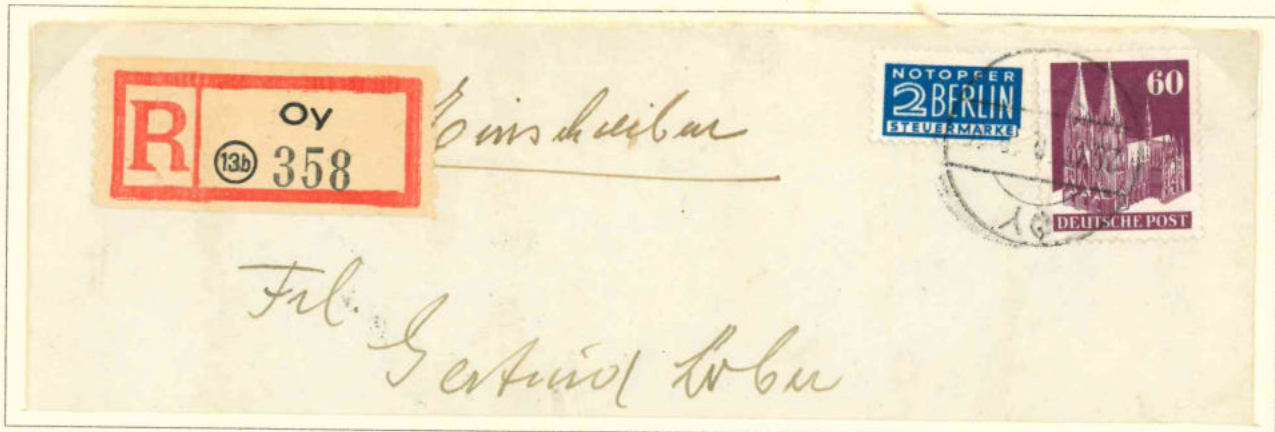 R
Oy
13b 358
Einschreiben
NOTOPFER
2 BERLIN
STEUERMARKE
60
DEUTSCHE POST
OY
Frl.
Gertrud